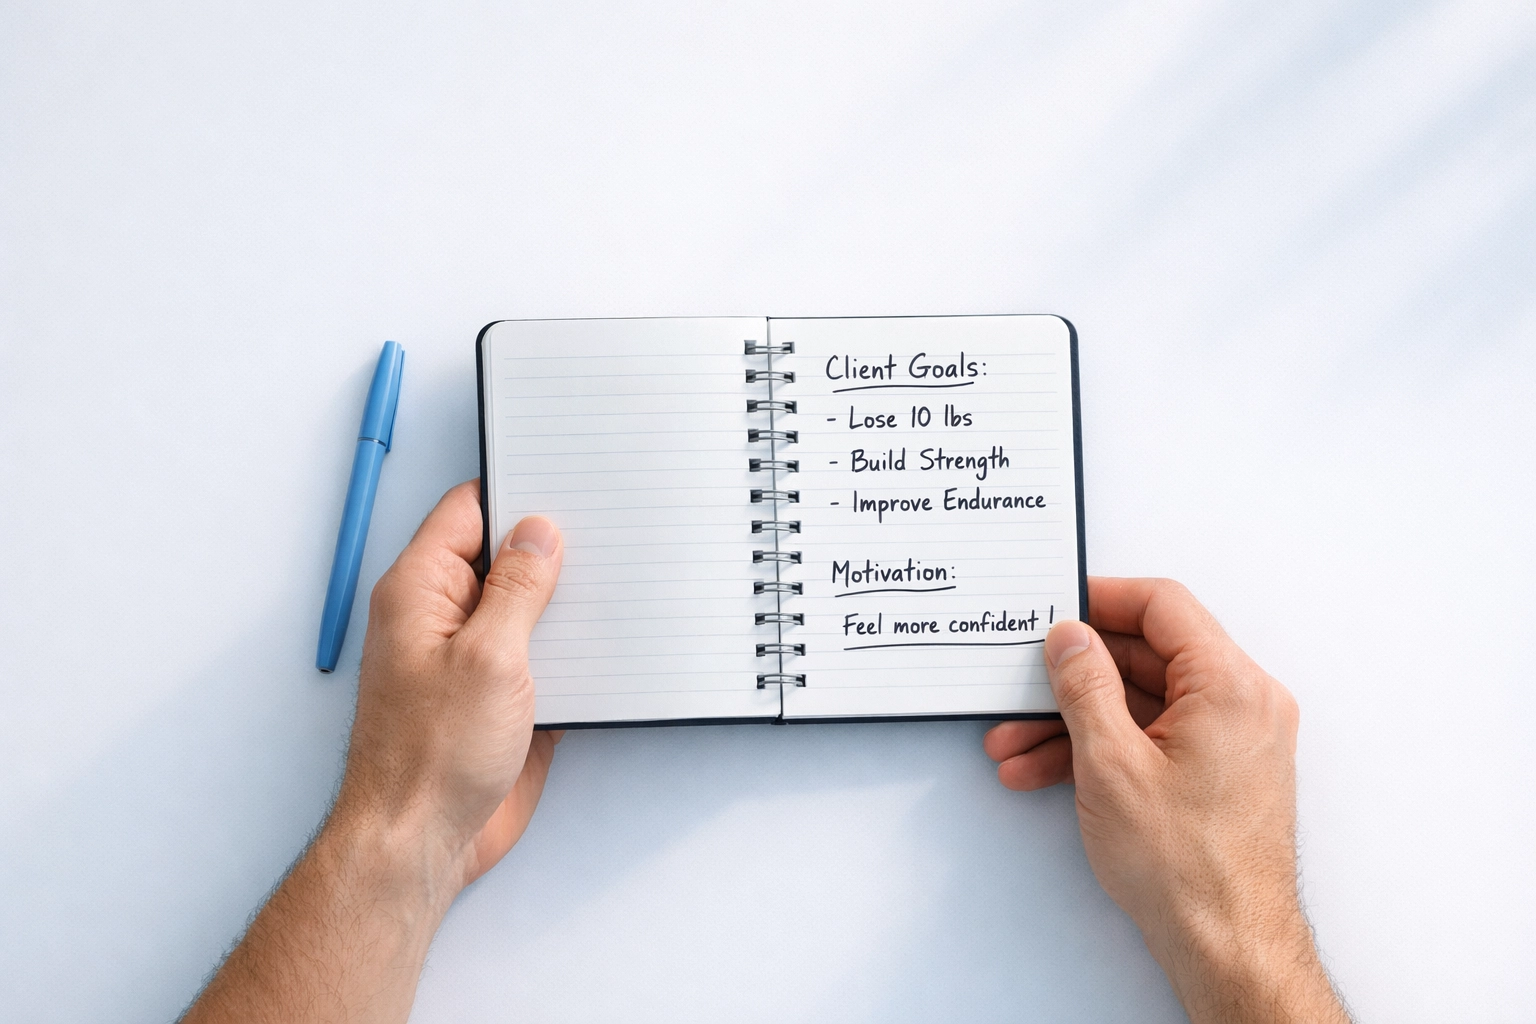 Client Goals:
- Lose 10 lbs
- Build Strength
- Improve Endurance
Motivation:
Feel more confident!